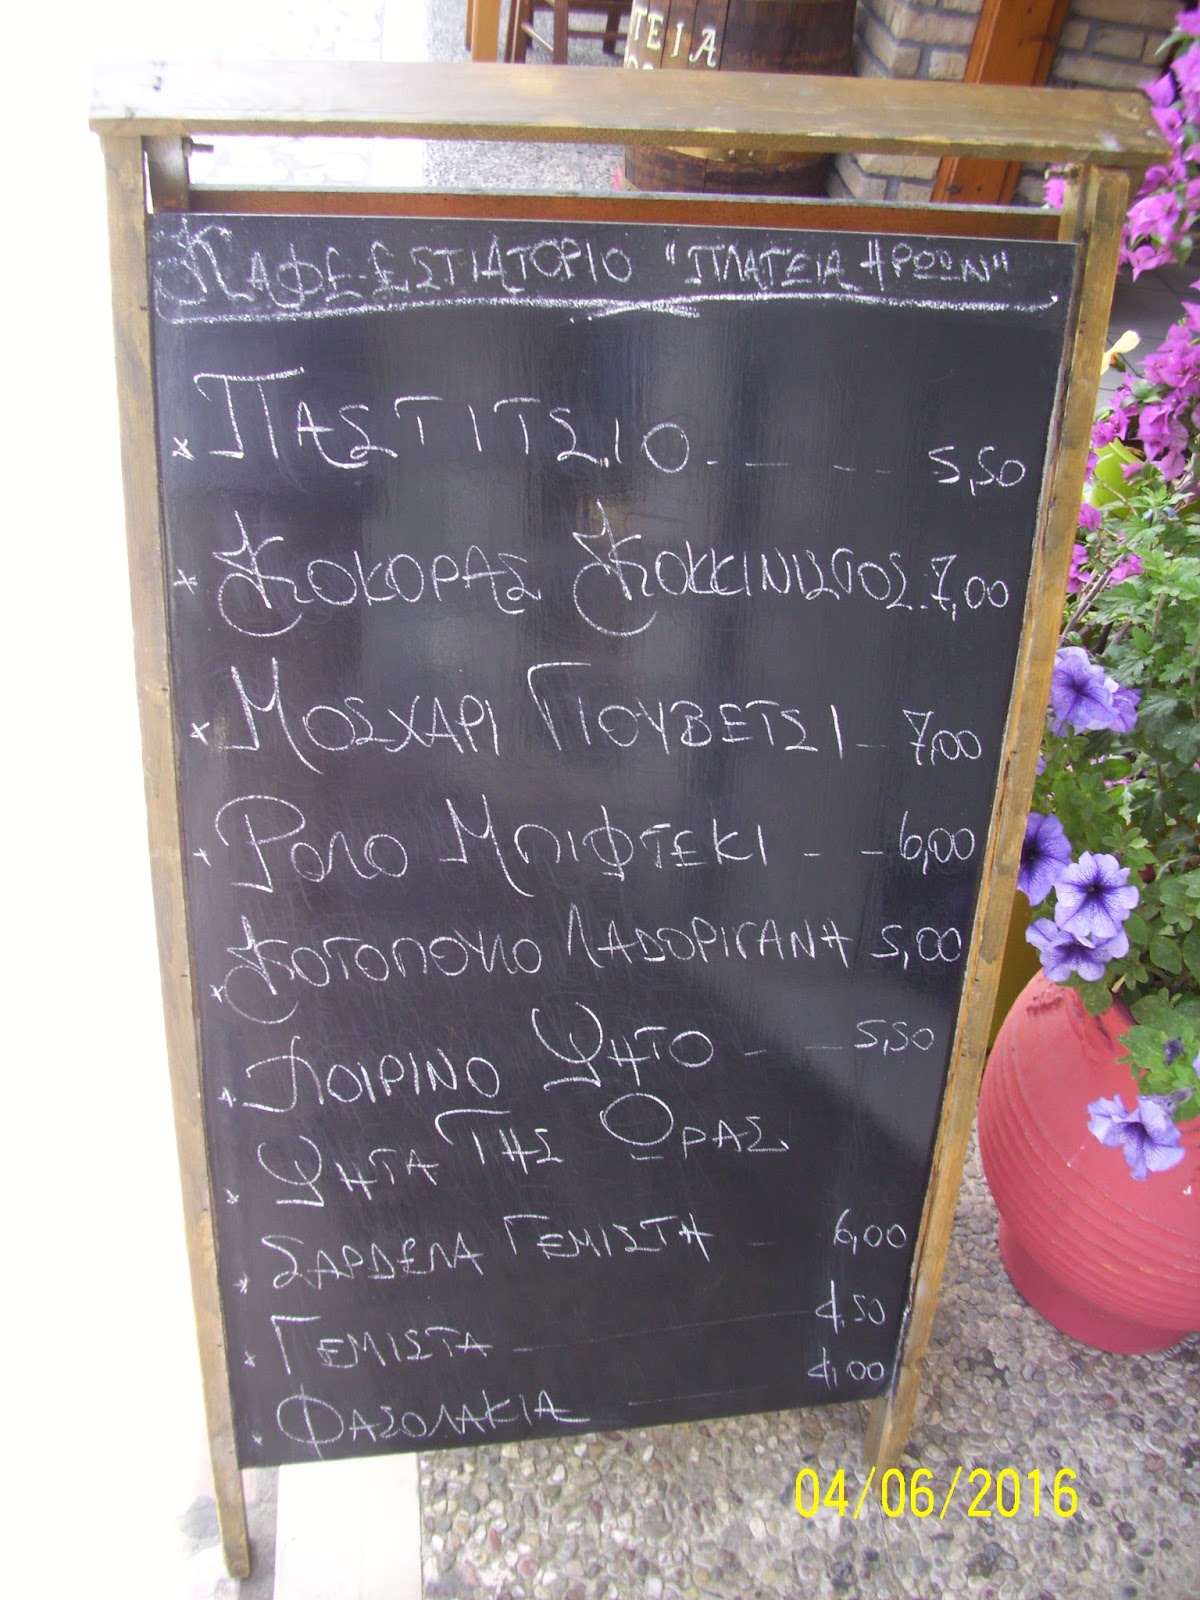 ΤΕΙΑ
ΚΑΦΕ-ΕΣΤΙΑΤΟΡΙΟ "ΠΛΑΤΕΙΑ ΗΡΩΩΝ"
x ΠΑΣΤΙΤΣΙΟ. — — — - - 5,50
x ΚΟΚΟΡΑΣ ΚΟΚΚΙΝΙΣΤΟΣ. 7,00
x ΜΟΣΧΑΡΙ ΓΙΟΥΒΕΤΣΙ — 7,00
x ΡΟΛΟ ΜΠΙΦΤΕΚΙ - — 6,00
x ΚΟΤΟΠΟΥΛΟ ΛΑΔΟΡΙΓΑΝΗ 5,00
x ΧΟΙΡΙΝΟ ΨΗΤΟ - — 5,50
x ΨΗΤΑ ΤΗΣ ΩΡΑΣ
x ΣΑΡΔΕΛΑ ΓΕΜΙΣΤΗ — 6,00
x ΓΕΜΙΣΤΑ — 4,50
x ΦΑΣΟΛΑΚΙΑ — 4,00
04/06/2016